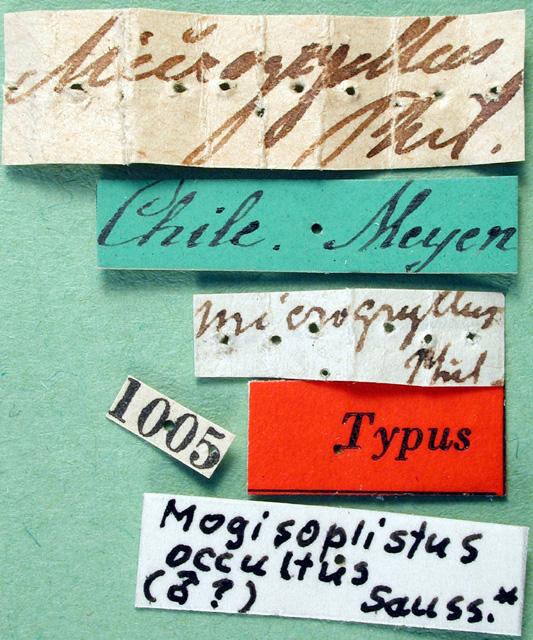 Microgryllus
Phil.
Chile. Meyen
microgryllus
Phil.
1005
Typus
Mogisoplistus
occultus
(♂?) Sauss.*